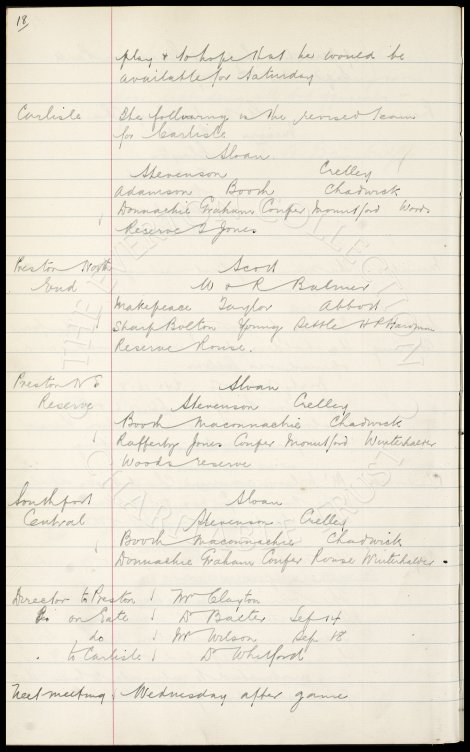 18
play & to hope that he would be
available for Saturday
Carlisle The following is the revised team
for Carlisle
Sloan
Stevenson Crelley
Adamson Booth Chadwick
Donnachie Graham Cooper Mountford Woods
Reserve T Jones
Preston North Scott
End W & R Balmer
Makepeace Taylor Abbott
Sharp Bolton Young Settle H P Hardman
Reserve Rouse.
Preston N E Sloan
Reserve Stevenson Crelley
Booth Maconnachie Chadwick
Rafferty Jones Cooper Mountford Winterhalder
Woods reserve
Southport Sloan
Central Stevenson Crelley
Booth Maconnachie Chadwick
Donnachie Graham Cooper Rouse Winterhalder.
Director to Preston Mr Clayton
Do on Gate Dr Baxter Sep 14
do Mr Wilson Sep 18
to Carlisle Dr Whitford
Next meeting Wednesday after game
THE EVERTON COLLECTION
CHARITABLE TRUST